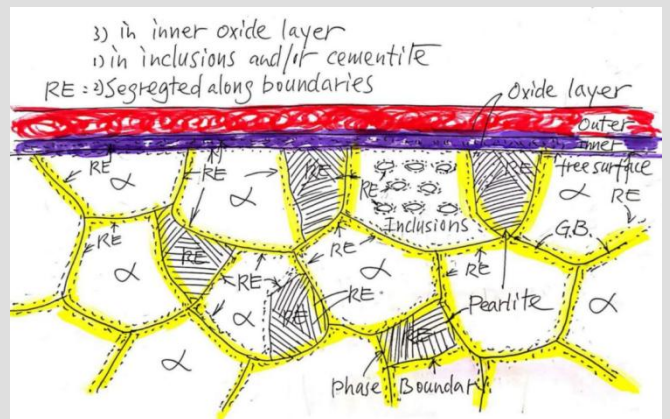 3) in inner oxide layer
1) in inclusions and/or cementite
RE = 2) Segregted along boundaries
Oxide layer
Outer
inner
free surface
RE
RE
RE
RE
RE
RE
α
α
α
Inclusions
G.B.
RE
RE
RE
RE
α
α
α
RE
RE
Pearlite
α
α
RE
Phase Boundary
α